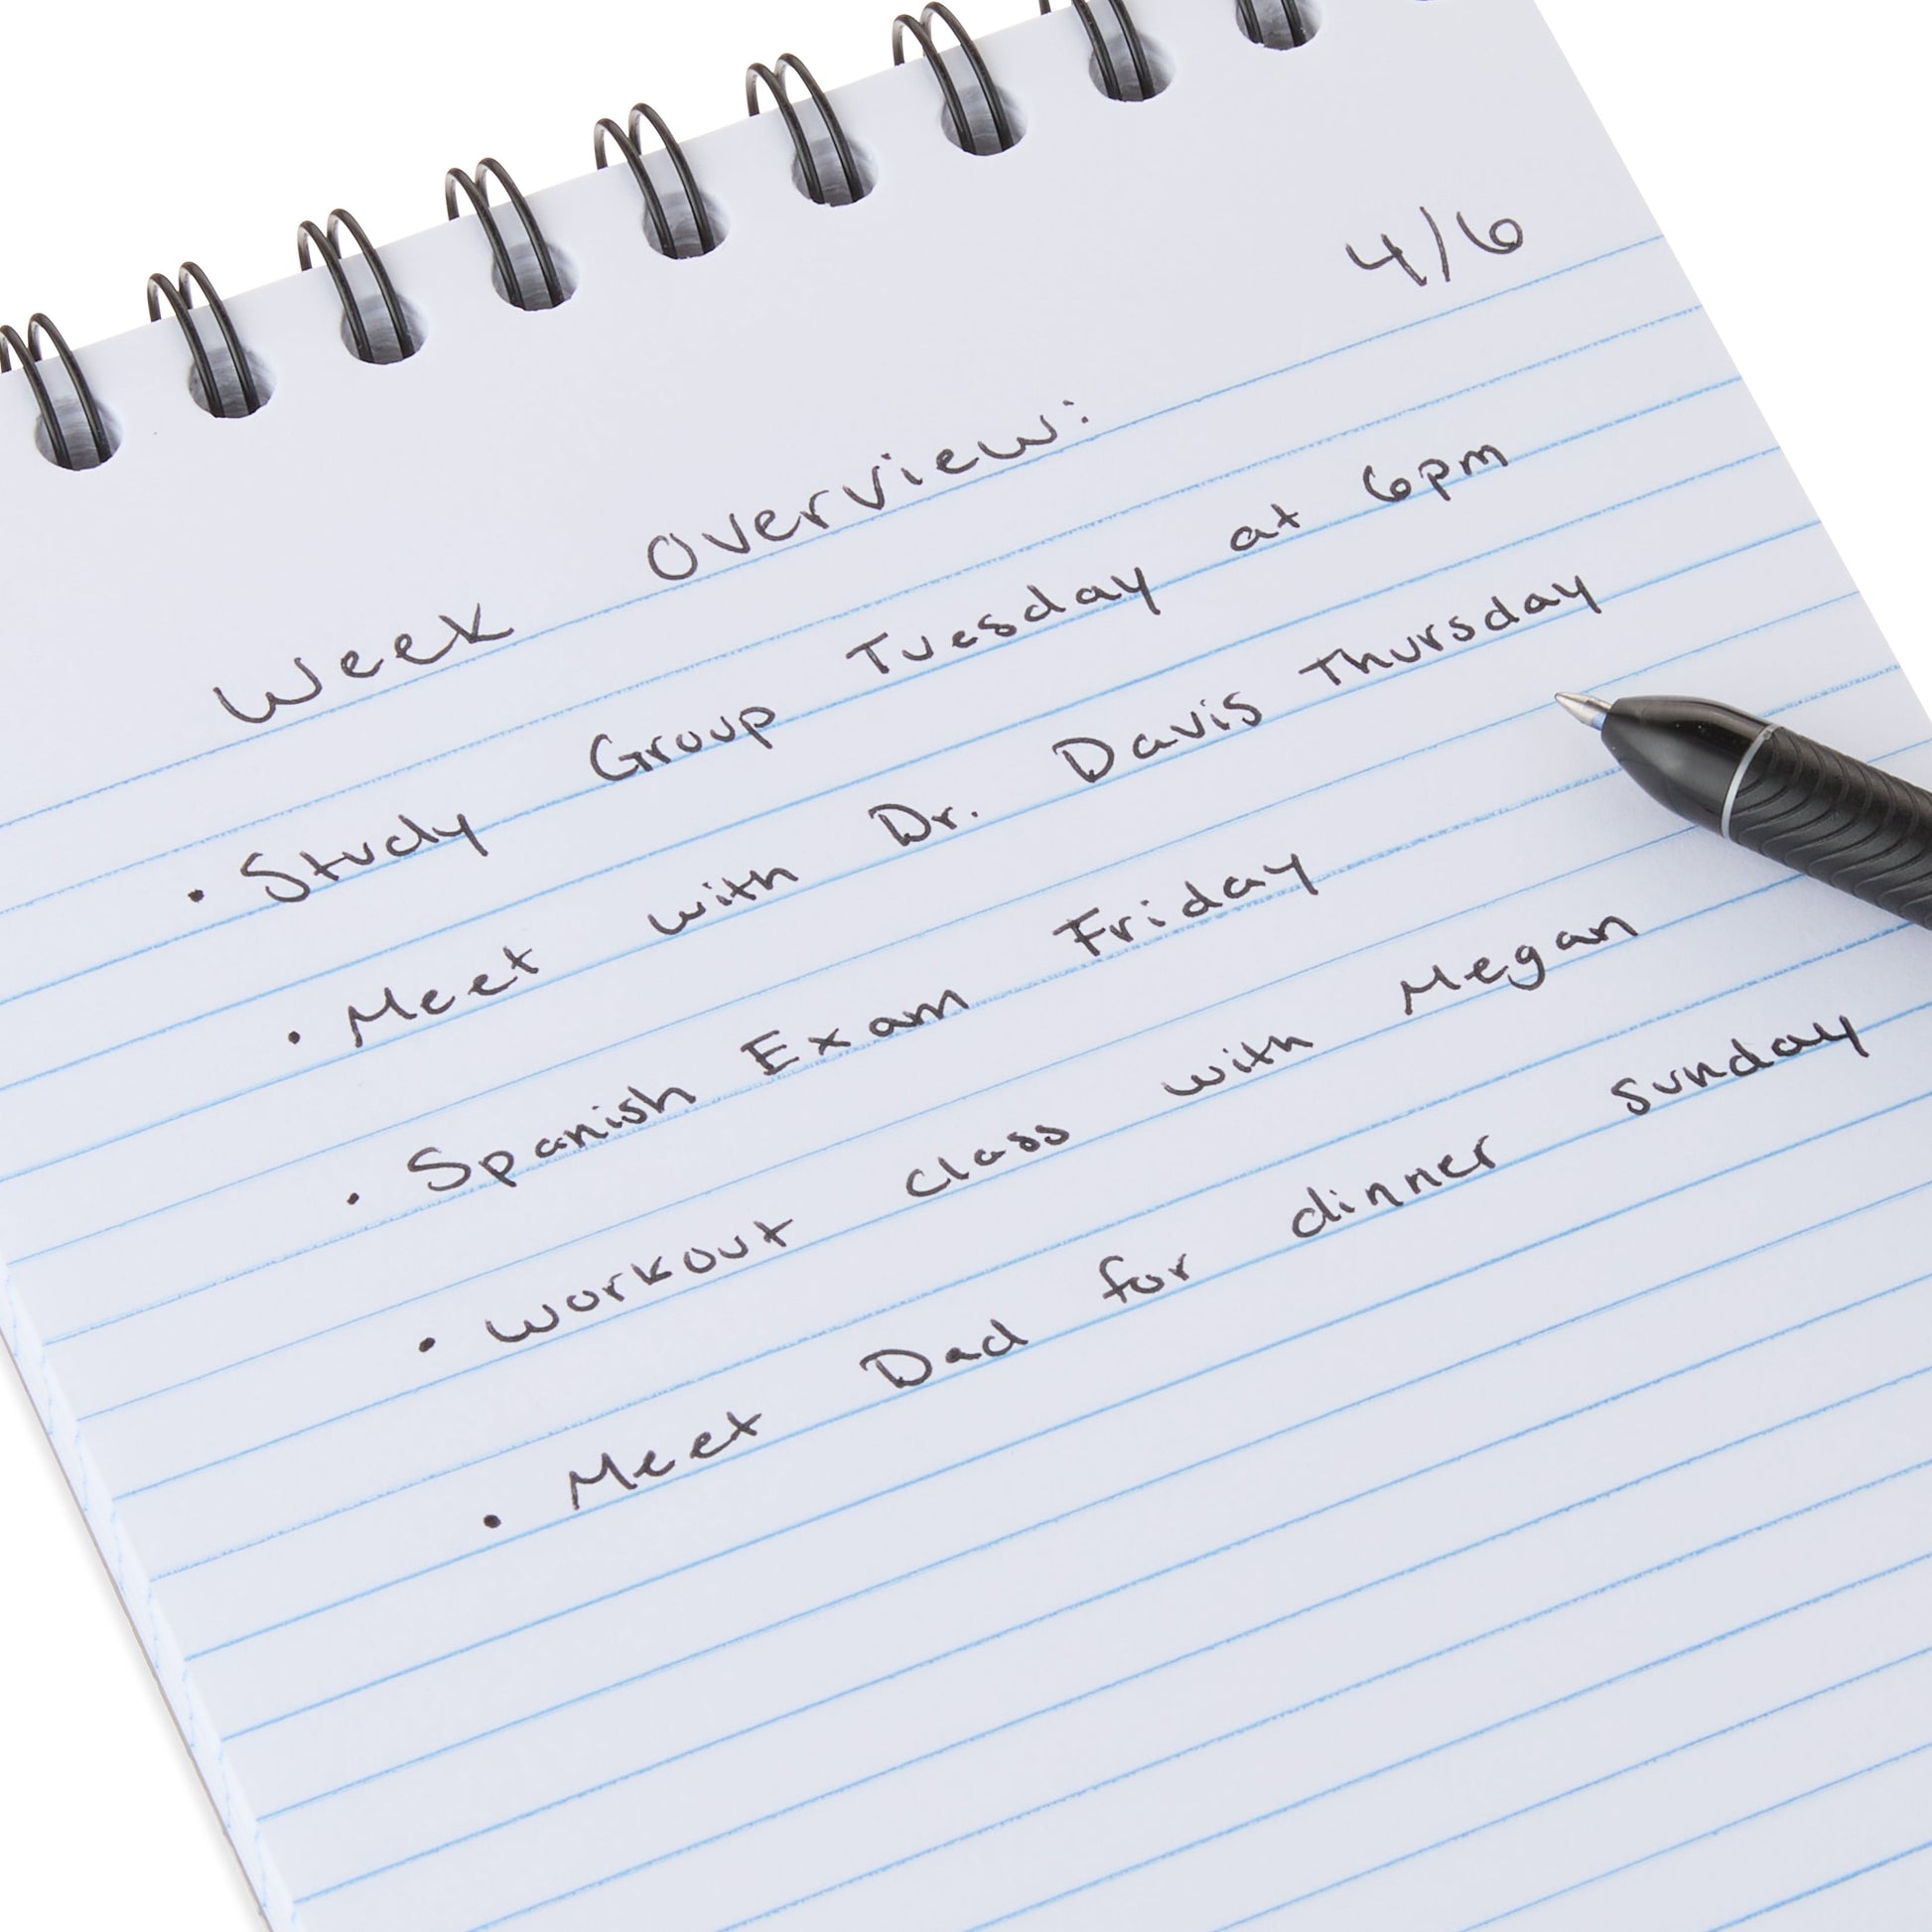 4/6
Week Overview:
• Study Group Tuesday at 6pm
• Meet with Dr. Davis Thursday
• Spanish Exam Friday
• Workout class with Megan
• Meet Dad for dinner Sunday